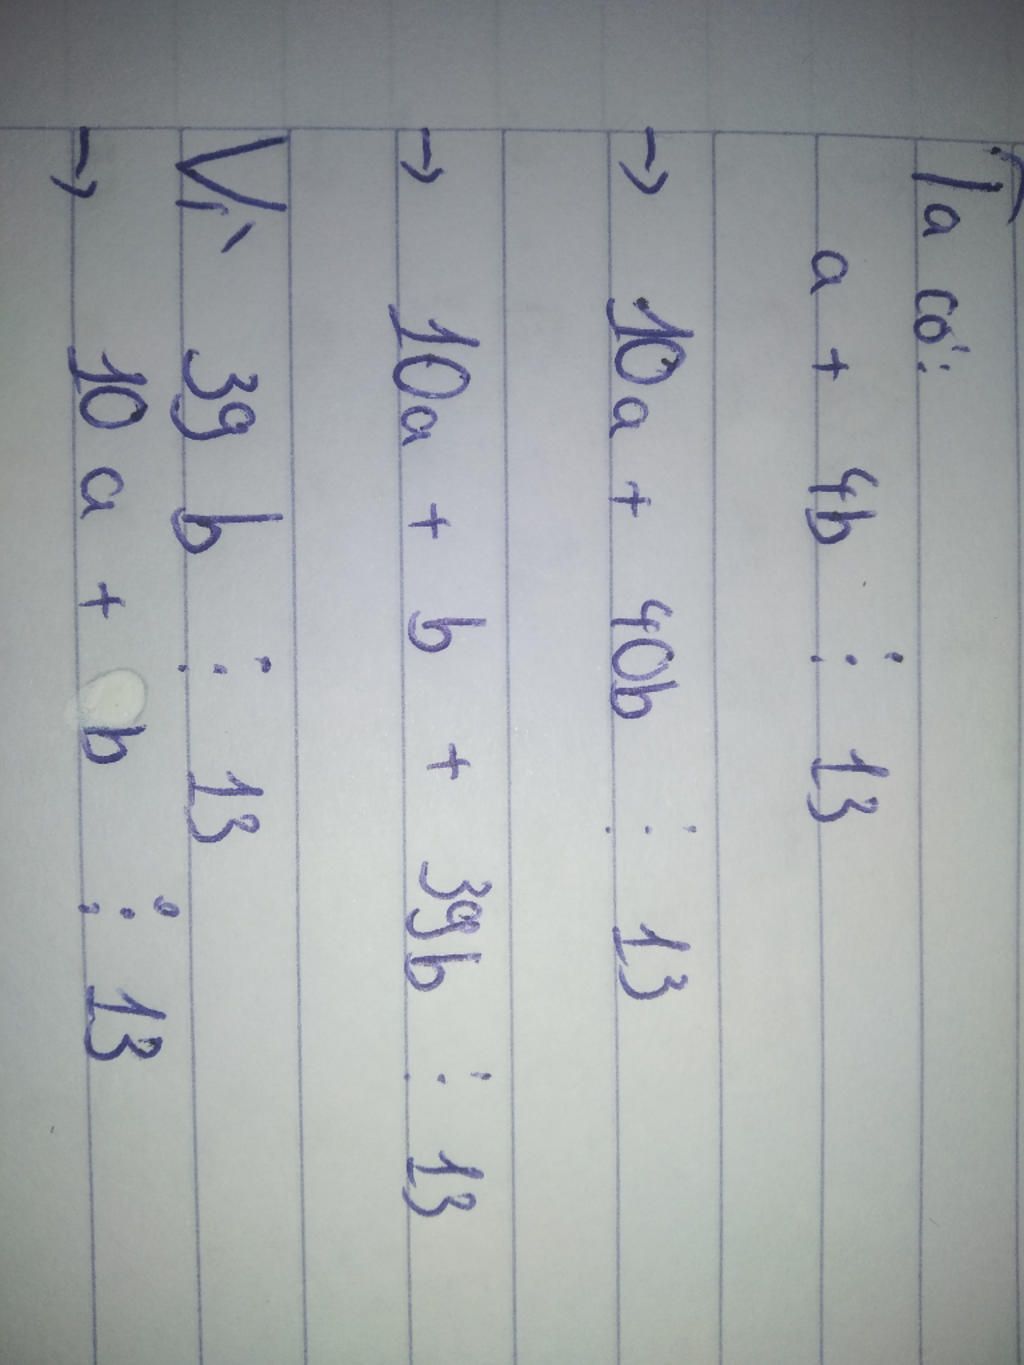 Ta có:
a + 4b ⋮ 13
→ 10a + 40b ⋮ 13
→ 10a + b + 39b ⋮ 13
Vì 39 b ⋮ 13
→ 10 a + b ⋮ 13